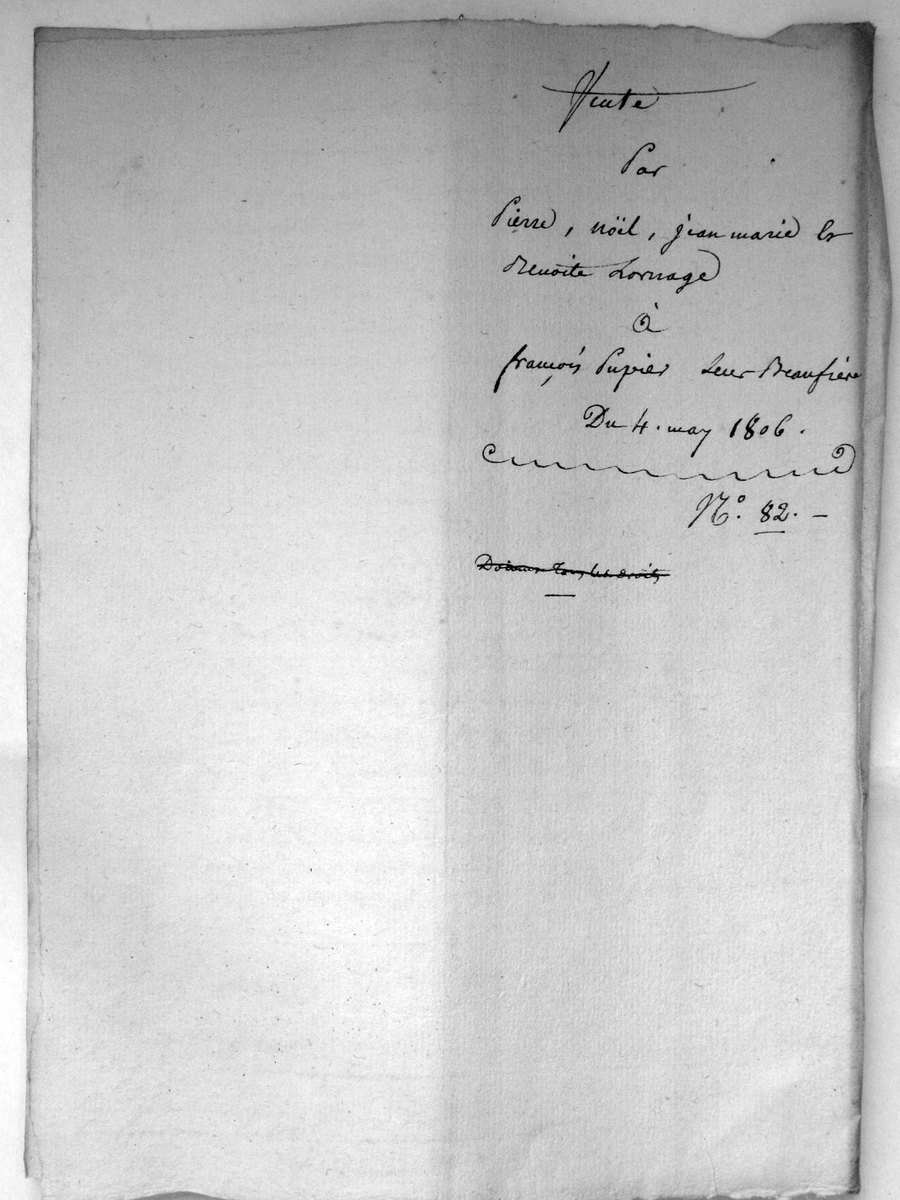 Vente
Par
Pierre, nöil, jean marie et
Benoite Lornage
à
françois Pupier Leur Beaufrère
Du 4. may 1806.
N.o 82. -
tous les droits